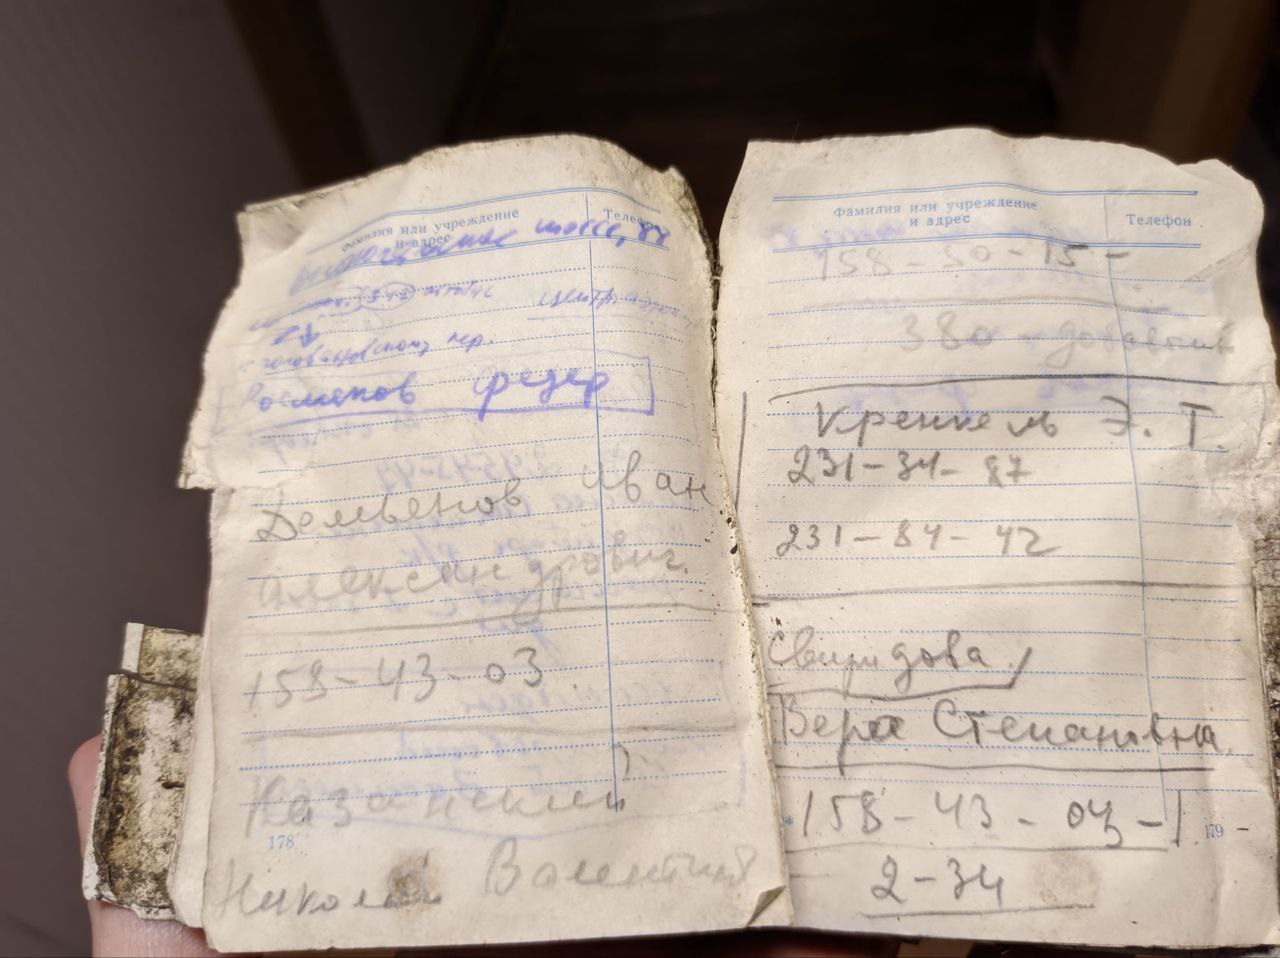 Фамилия или учреждение
и адрес
Телефон
шоссе,
пер.
физер
Демьенов Иван
Александрович.
158-43-03
Казанский
178
Николай Валентин
Фамилия или учреждение
и адрес
Телефон
158-50-15-
380 - добавочн
Кренкель Э. Т.
231-34-87
231-84-42
Свиридова
Вера Степановна.
158-43-03-
2-34
179